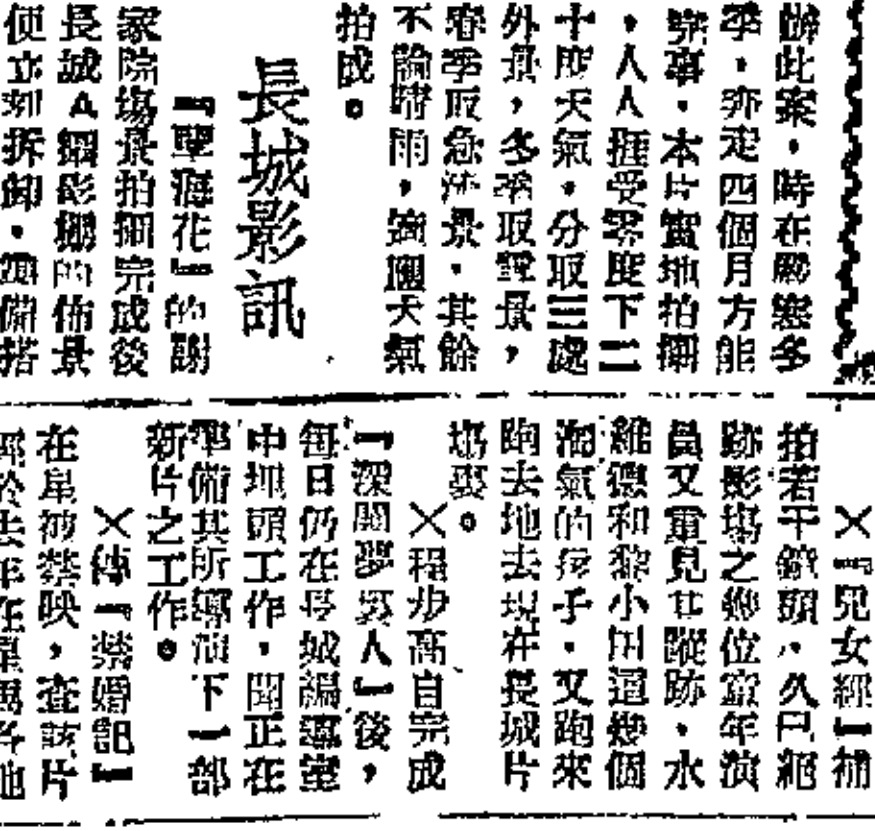 辦此案，時在嚴寒冬
季，奔走四個月方能
完事。本片實地拍攝
，人人捱受零度下二
十度天氣，分取三處
外景，冬季取雪景，
春季取急流景，其餘
不論晴雨，適應天氣
拍成。
長城影訊
『孽海花』的謝
家院塲景拍攝完成後
長城Ａ攝影棚的佈景
便立刻拆卸，準備搭
×『兒女經』補
拍若干鏡頭，久已絕
跡影塲之幾位童年演
員又重見其蹤跡，水
維德和黎小田這幾個
淘氣的孩子，又跑來
跑去地去現在長城片
塲裏。
×程步高自完成
『深閨夢裏人』後，
每日仍在長城編導室
中埋頭工作，聞正在
準備其所導演下一部
新片之工作。
×傳『禁婚記』
在星被禁映，查該片
於去年在星馬各地